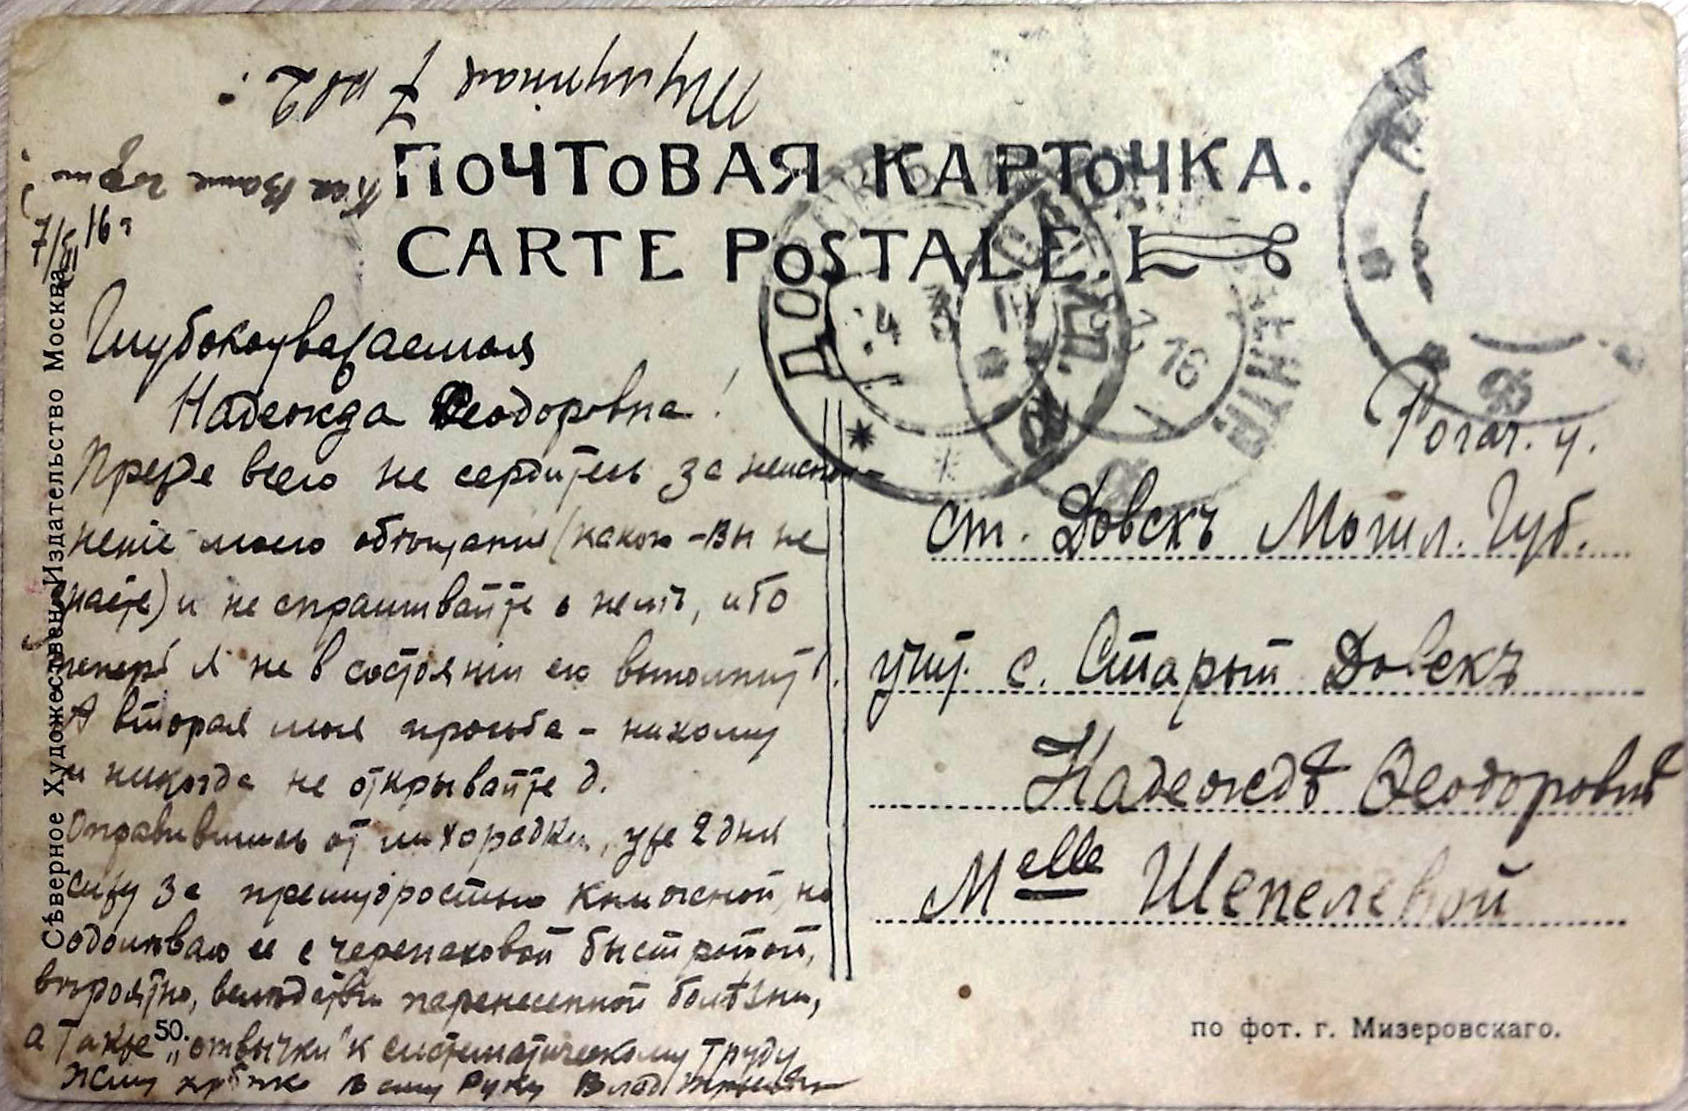 ПОЧТОВАЯ КАРТОЧКА.
CARTE POSTALE.
7/III 16 г
Глубокоуважаемая
Надежда Ѳеодоровна!
Прежде всего не сердитесь за неиспол-
неніе моего обѣщанія (какого - Вы не
знаете) и не спрашивайте о немъ, ибо
теперь я не в состояніи его выполнить.
А вторая моя просьба - никому
и никогда не открывайте д.
Оправившись от лихорадки, уже 2 дня
сижу за премудростью книжной, но
одолѣваю ее с черепаховой быстротой,
вѣроятно, вслѣдствіи перенесенной болѣзни,
а также „отвычки" к систематическому труду
Жму крѣпко Вашу руку Влад
Как Ваше
7
Рогач. у.
ст. Довскъ Могил. Губ.
учит. с. Старый Довскъ
Надеждѣ Ѳеодоровнѣ
Melle Шепелевой
Сѣверное Художествен. Издательство Москва
50.
по фот. г. Мизеровскаго.
16